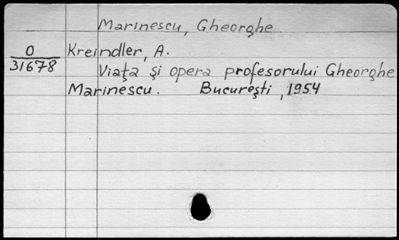 Marinescu, Gheorghe
O Kreindler, A.
31678
Viaţa şi opera profesorului Gheorghe
Marinescu. Bucureşti, 1954